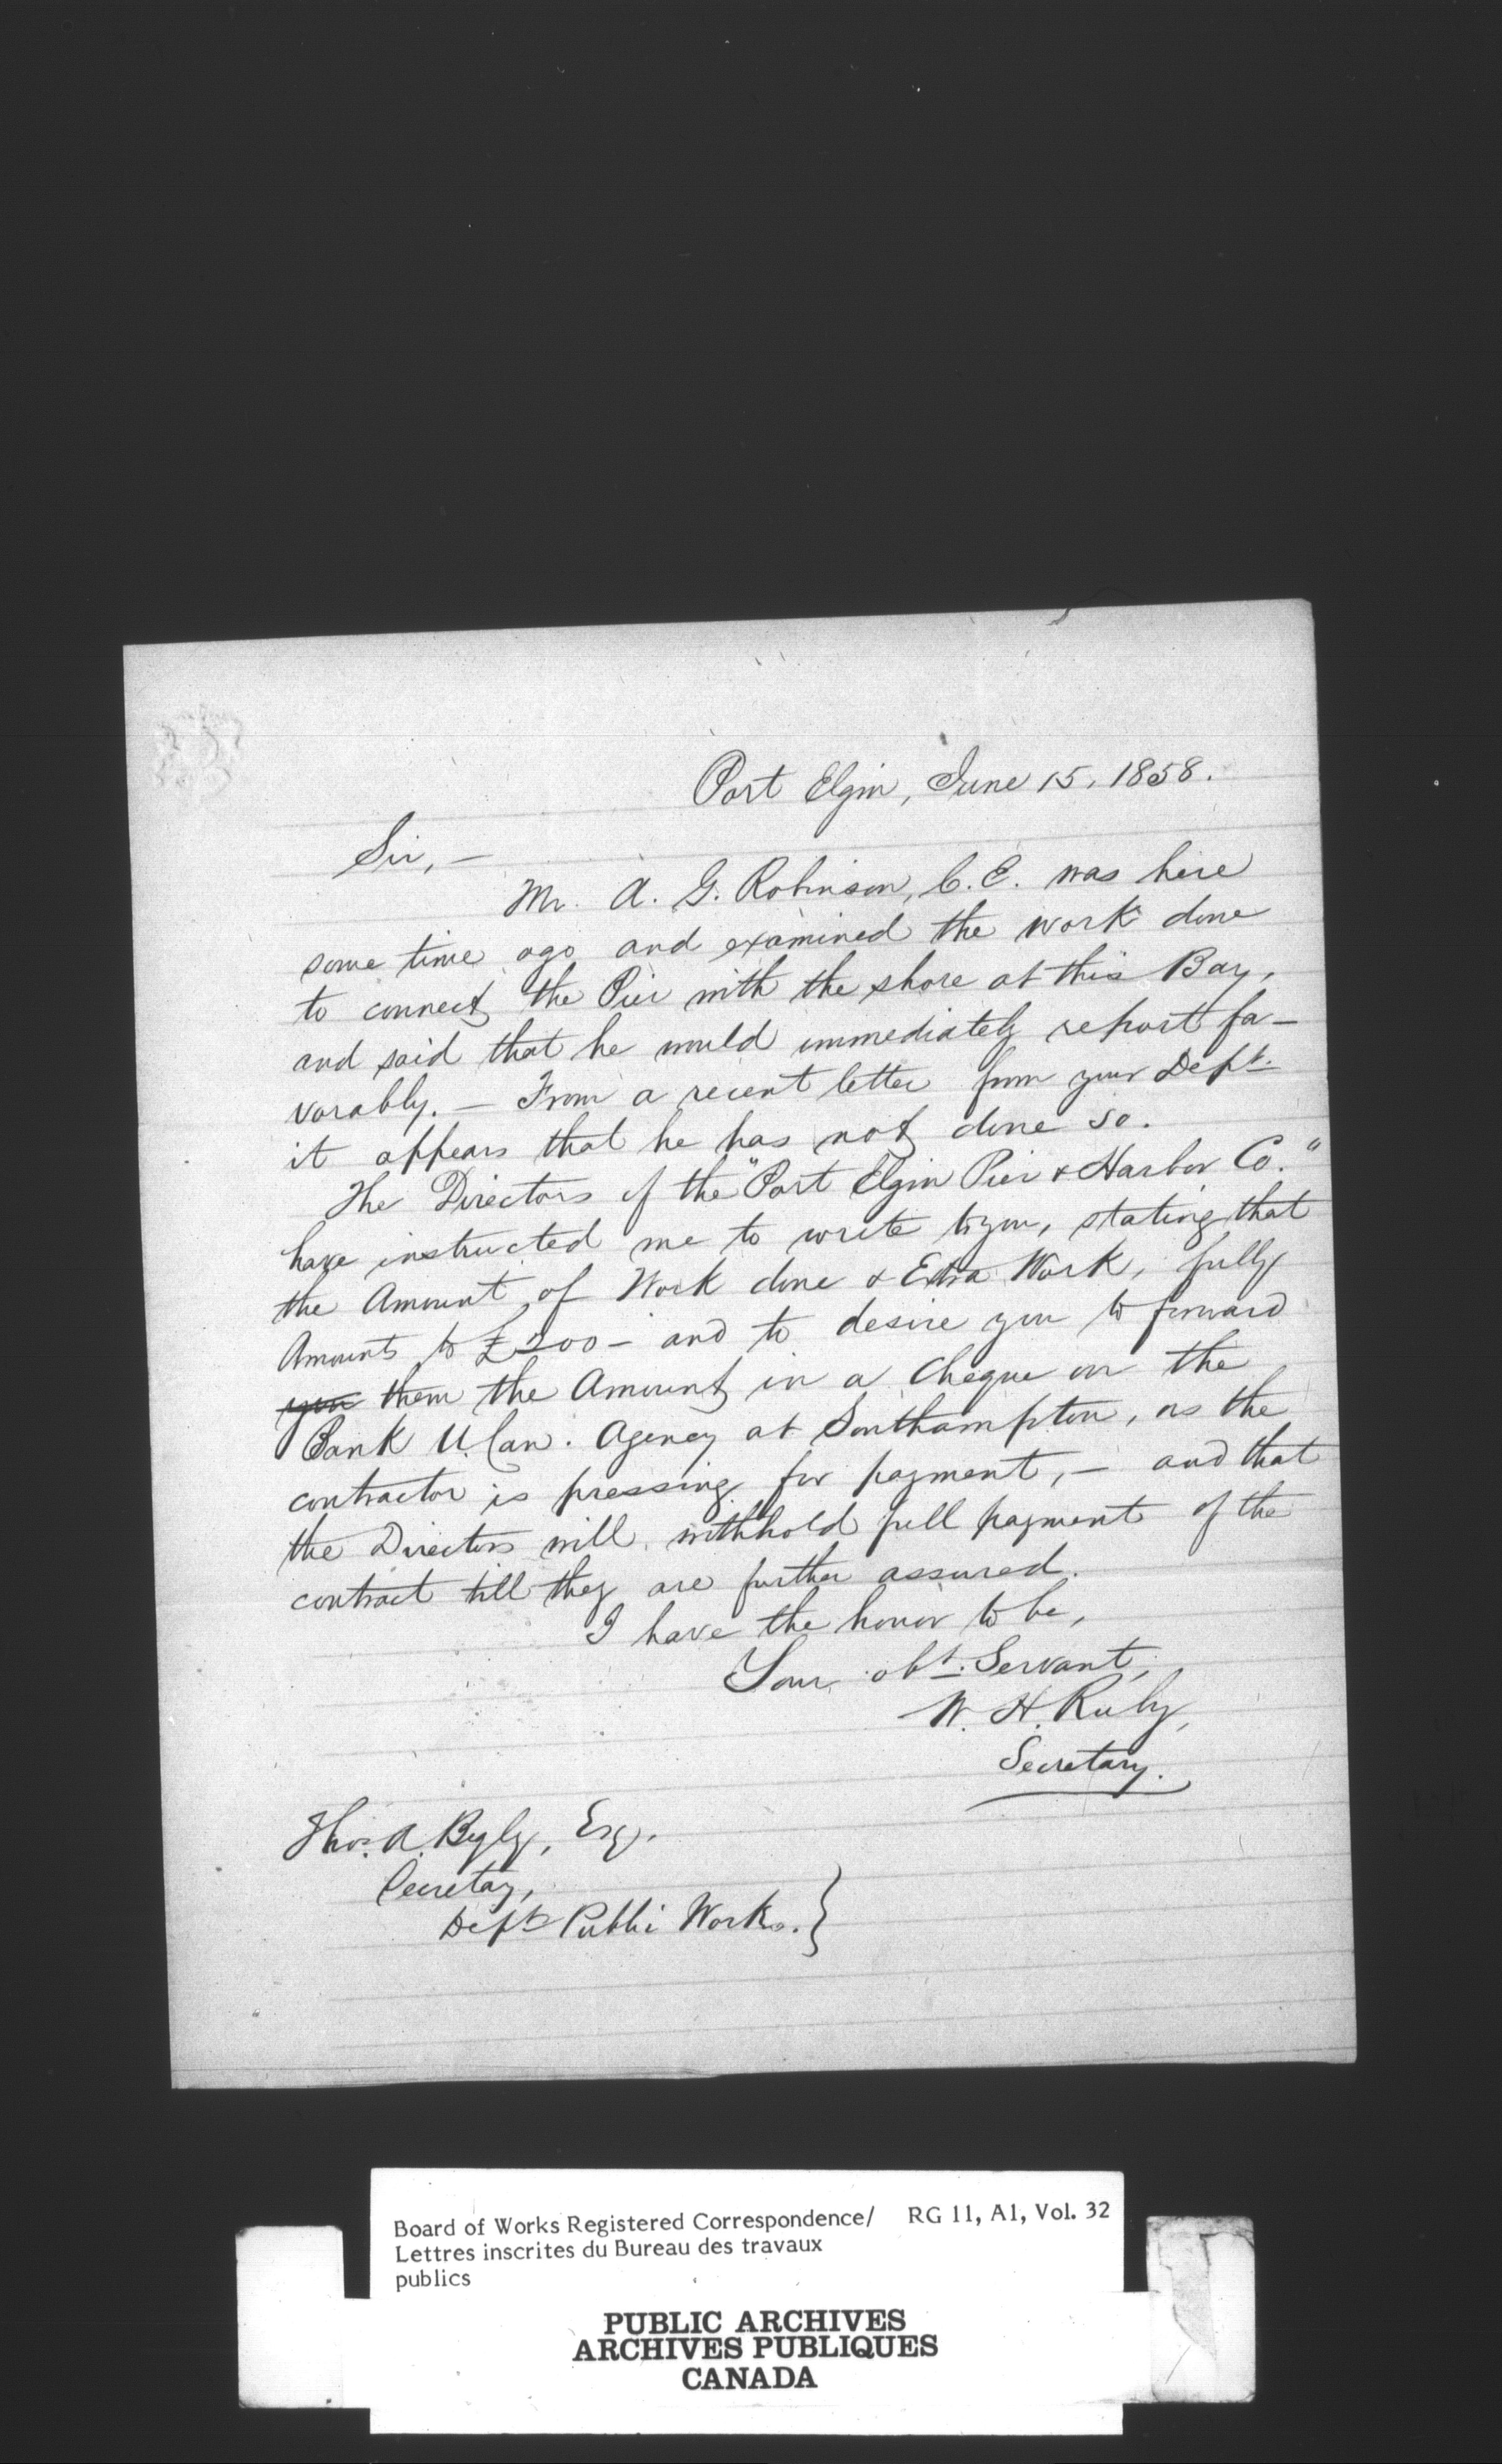 Port Elgin, June 15, 1858.
Sir, —
Mr. A. G. Robinson, C. E. was here
some time ago and examined the work done
to connect the Pier with the shore at this Bay,
and said that he would immediately report fa-
vorably. — From a recent letter from your Dept.
it appears that he has not done so.
The Directors of the "Port Elgin Pier & Harbor Co."
have instructed me to write to you, stating that
the Amount of Work done & Extra Work, fully
Amounts to £200 - and to desire you to forward
you them the Amount in a Cheque on the
Bank U. Can. Agency at Southampton, as the
contractor is pressing for payment, — and that
the Directors will withhold full payment of the
contract till they are further assured.
I have the honor to be,
Your obt. Servant,
W. H. Ruby,
Secretary.
Thos. A. Begly, Esq.
Secretay,
Dept Public Works. }
Board of Works Registered Correspondence/ RG 11, A1, Vol. 32
Lettres inscrites du Bureau des travaux
publics
PUBLIC ARCHIVES
ARCHIVES PUBLIQUES
CANADA